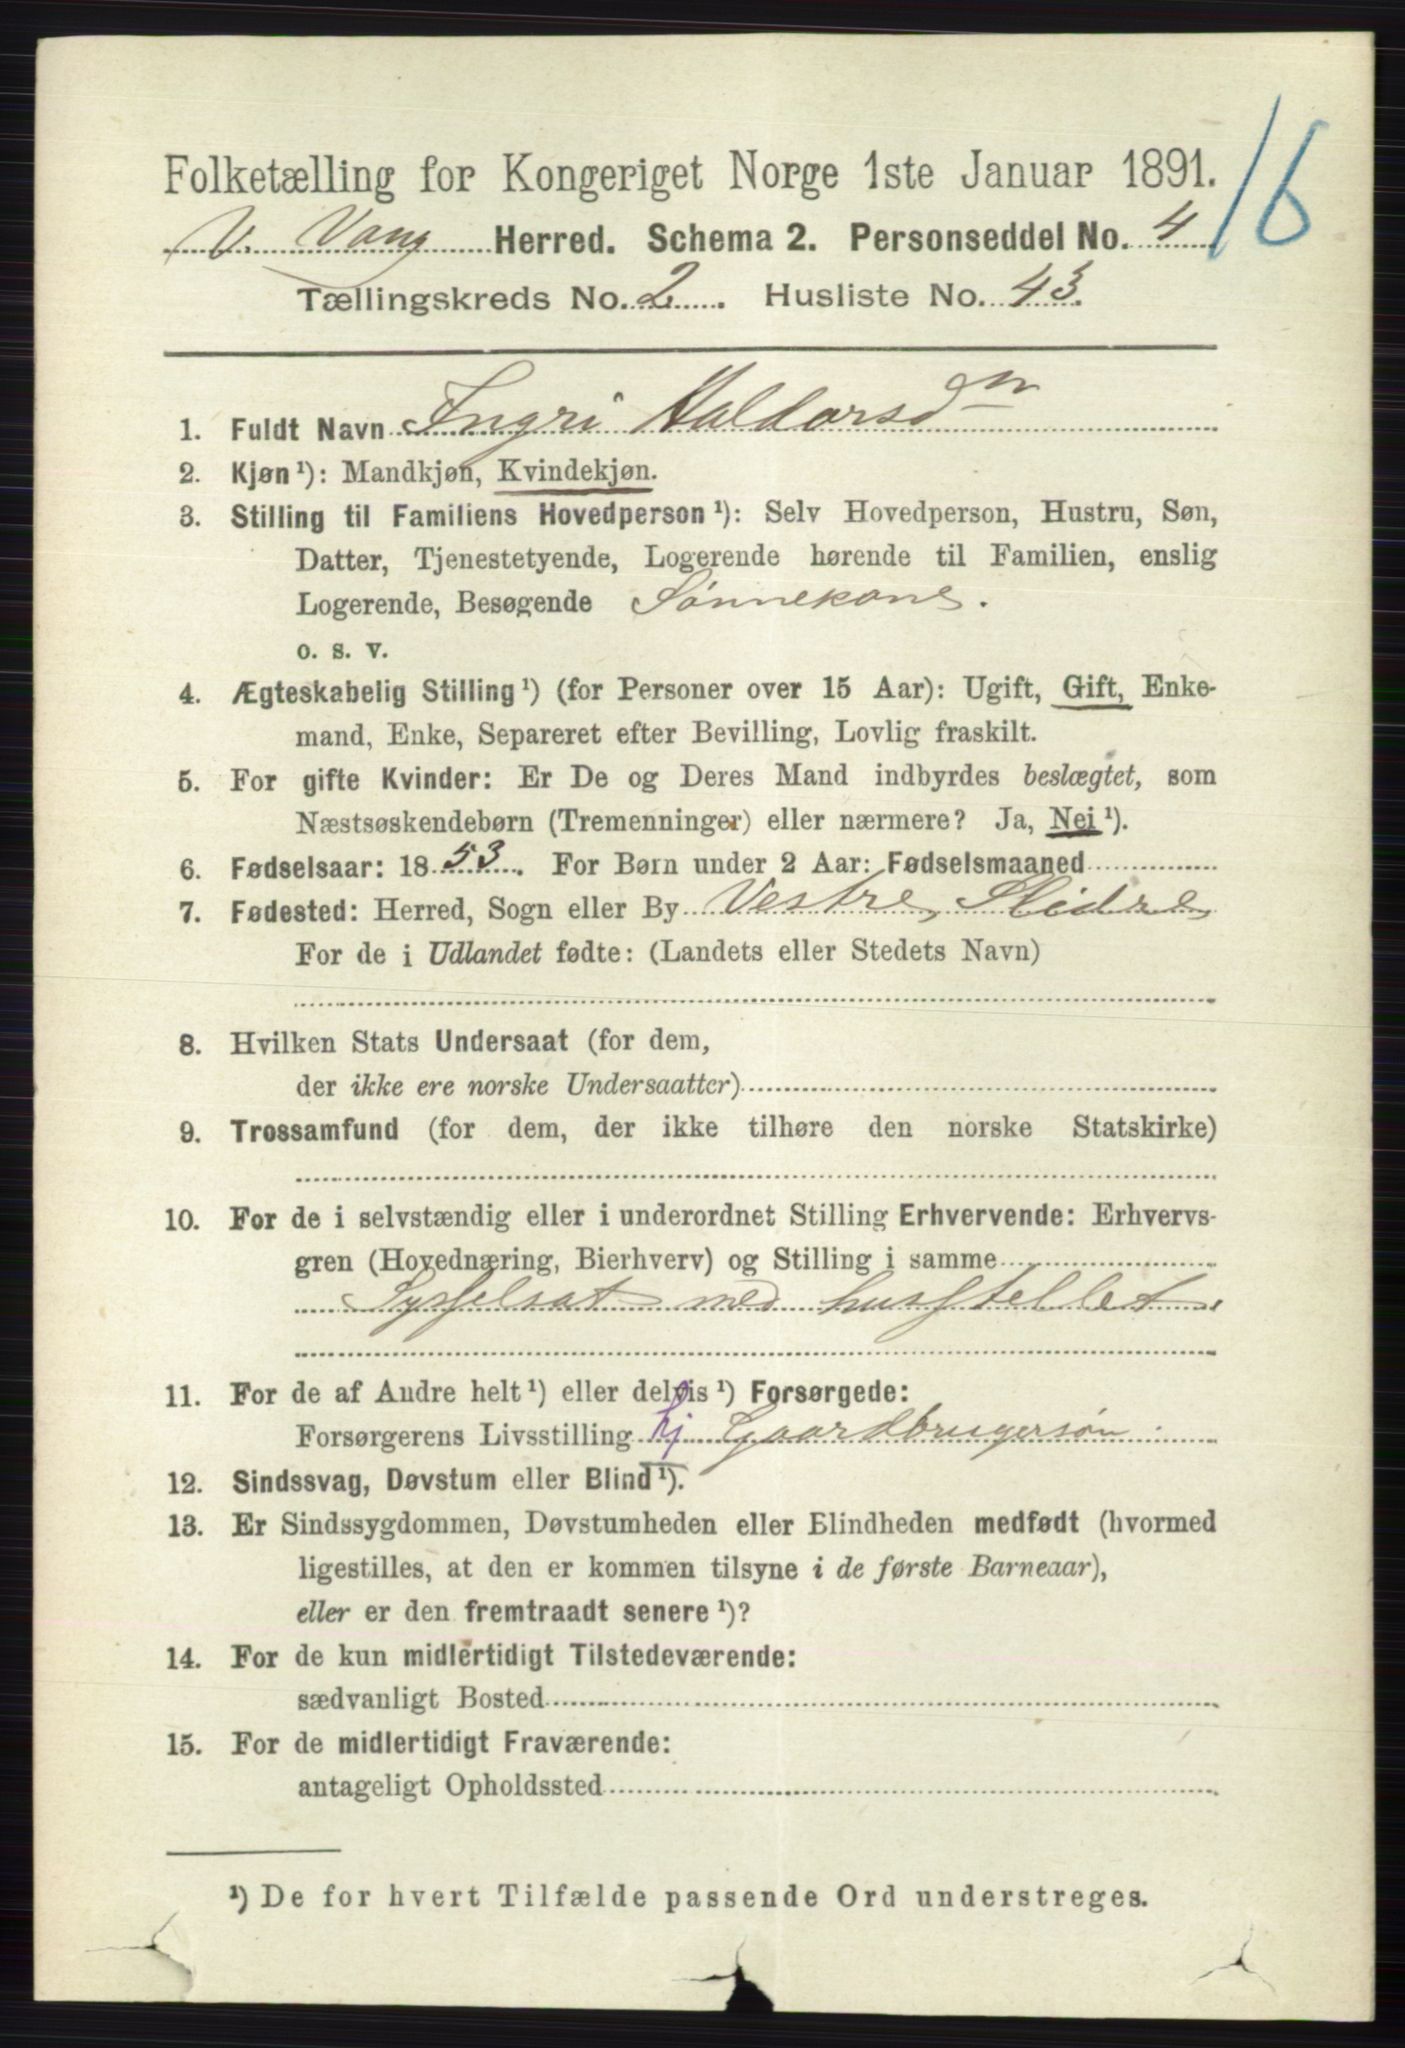 16
Folketælling for Kongeriget Norge 1ste Januar 1891.
V. Vang Herred. Schema 2. Personseddel No. 4
Tællingskreds No. 2. Husliste No. 43.
1. Fuldt Navn Ingri Haldorsdn
2. Kjøn¹): Mandkjøn, Kvindekjøn.
3. Stilling til Familiens Hovedperson¹): Selv Hovedperson, Hustru, Søn,
Datter, Tjenestetyende, Logerende hørende til Familien, enslig
Logerende, Besøgende Sønnekone.
o. s. v.
4. Ægteskabelig Stilling¹) (for Personer over 15 Aar): Ugift, Gift, Enke-
mand, Enke, Separeret efter Bevilling, Lovlig fraskilt.
5. For gifte Kvinder: Er De og Deres Mand indbyrdes beslægtet, som
Næstsøskendebørn (Tremenninger) eller nærmere? Ja, Nei¹).
6. Fødselsaar: 1853. For Børn under 2 Aar: Fødselsmaaned
7. Fødested: Herred, Sogn eller By Vestre Slidre
For de i Udlandet fødte: (Landets eller Stedets Navn)
8. Hvilken Stats Undersaat (for dem,
der ikke ere norske Undersaatter)
9. Trossamfund (for dem, der ikke tilhøre den norske Statskirke)
10. For de i selvstændig eller i underordnet Stilling Erhvervende: Erhvervs-
gren (Hovednæring, Bierhverv) og Stilling i samme
Sysselsat med husstellet.
11. For de af Andre helt¹) eller delvis¹) Forsørgede:
Forsørgerens Livsstilling hj Gaardbrugersøn
12. Sindssvag, Døvstum eller Blind¹).
13. Er Sindssygdommen, Døvstumheden eller Blindheden medfødt (hvormed
ligestilles, at den er kommen tilsyne i de første Barneaar),
eller er den fremtraadt senere¹)?
14. For de kun midlertidigt Tilstedeværende:
sædvanligt Bosted
15. For de midlertidigt Fraværende:
antageligt Opholdssted
¹) De for hvert Tilfælde passende Ord understreges.